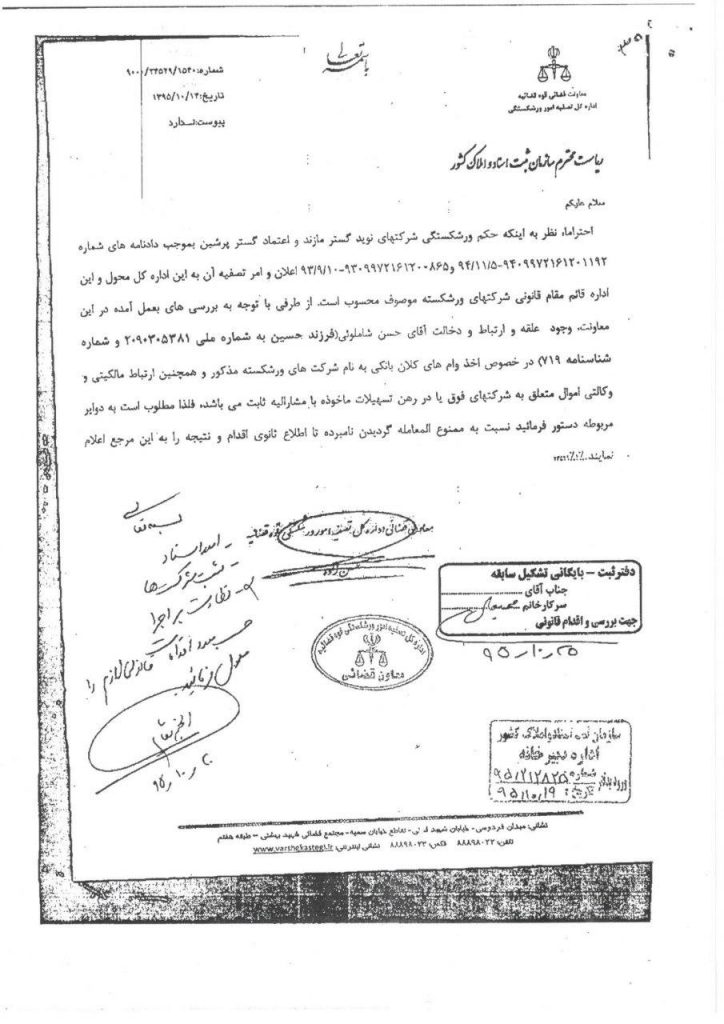 باسمه تعالی
معاونت قضائی قوه قضائیه
اداره کل تصفیه امور ورشکستگی
شماره: ۹۰۰۰/۳۴۵۲۹/۱۵۴۰
تاریخ: ۱۳۹۵/۱۰/۱۴
پیوست: ندارد
ریاست محترم سازمان ثبت اسناد و املاک کشور
سلام علیکم
احتراما، نظر به اینکه حکم ورشکستگی شرکتهای نوید گستر مازند و اعتماد گستر پرشین بموجب دادنامه های شماره
۹۴۰۹۹۷۲۱۶۱۲۰۱۱۹۲-۹۴/۱۱/۵ و ۹۳۰۹۹۷۲۱۶۱۲۰۰۸۶۵-۹۳/۹/۱۰ اعلان و امر تصفیه آن به این اداره کل محول و این
اداره قائم مقام قانونی شرکتهای ورشکسته موصوف محسوب است. از طرفی با توجه به بررسی های بعمل آمده در این
معاونت، وجود علقه و ارتباط و دخالت آقای حسن شاملوئی (فرزند حسین به شماره ملی ۲۰۹۰۳۰۵۳۸۱ و شماره
شناسنامه ۷۱۹) در خصوص اخذ وام های کلان بانکی به نام شرکت های ورشکسته مذکور و همچنین ارتباط مالکیتی و
وکالتی اموال متعلق به شرکتهای فوق یا در رهن تسهیلات ماخوذه با مشارالیه ثابت می باشد، فلذا مطلوب است به دوایر
مربوطه دستور فرمائید نسبت به ممنوع المعامله گردیدن نامبرده تا اطلاع ثانوی اقدام و نتیجه را به این مرجع اعلام
نمایند.
معاون قضائی و اداره کل تصفیه امور ورشکستگی قوه قضائیه
بسمه تعالی
- امور اسناد
- ثبت شرکت ها
- نظارت بر اجرا
اقدام قانونی لازم را
معمول فرمائید
۹۵/۱۰/۲۰
اداره کل تصفیه امور ورشکستگی قوه قضائیه
معاون قضائی
دفتر ثبت – بایگانی تشکیل سابقه
جناب آقای
سرکار خانم
جهت بررسی و اقدام قانونی
۹۵/۱۰/۲۵
سازمان ثبت اسناد و املاک کشور
اداره دبیرخانه
شماره: ۹۵/۲۱۲۸۲۵
تاریخ: ۹۵/۱۰/۱۹
نشانی: میدان فردوسی - خیابان شهید قرنی - تقاطع خیابان سمیه - مجتمع قضائی شهید بهشتی – طبقه هفتم
تلفن: ۸۸۸۹۸۰۲۲ فکس: ۸۸۸۹۸۰۲۳ نشانی اینترنتی: www.varshekastegi.ir